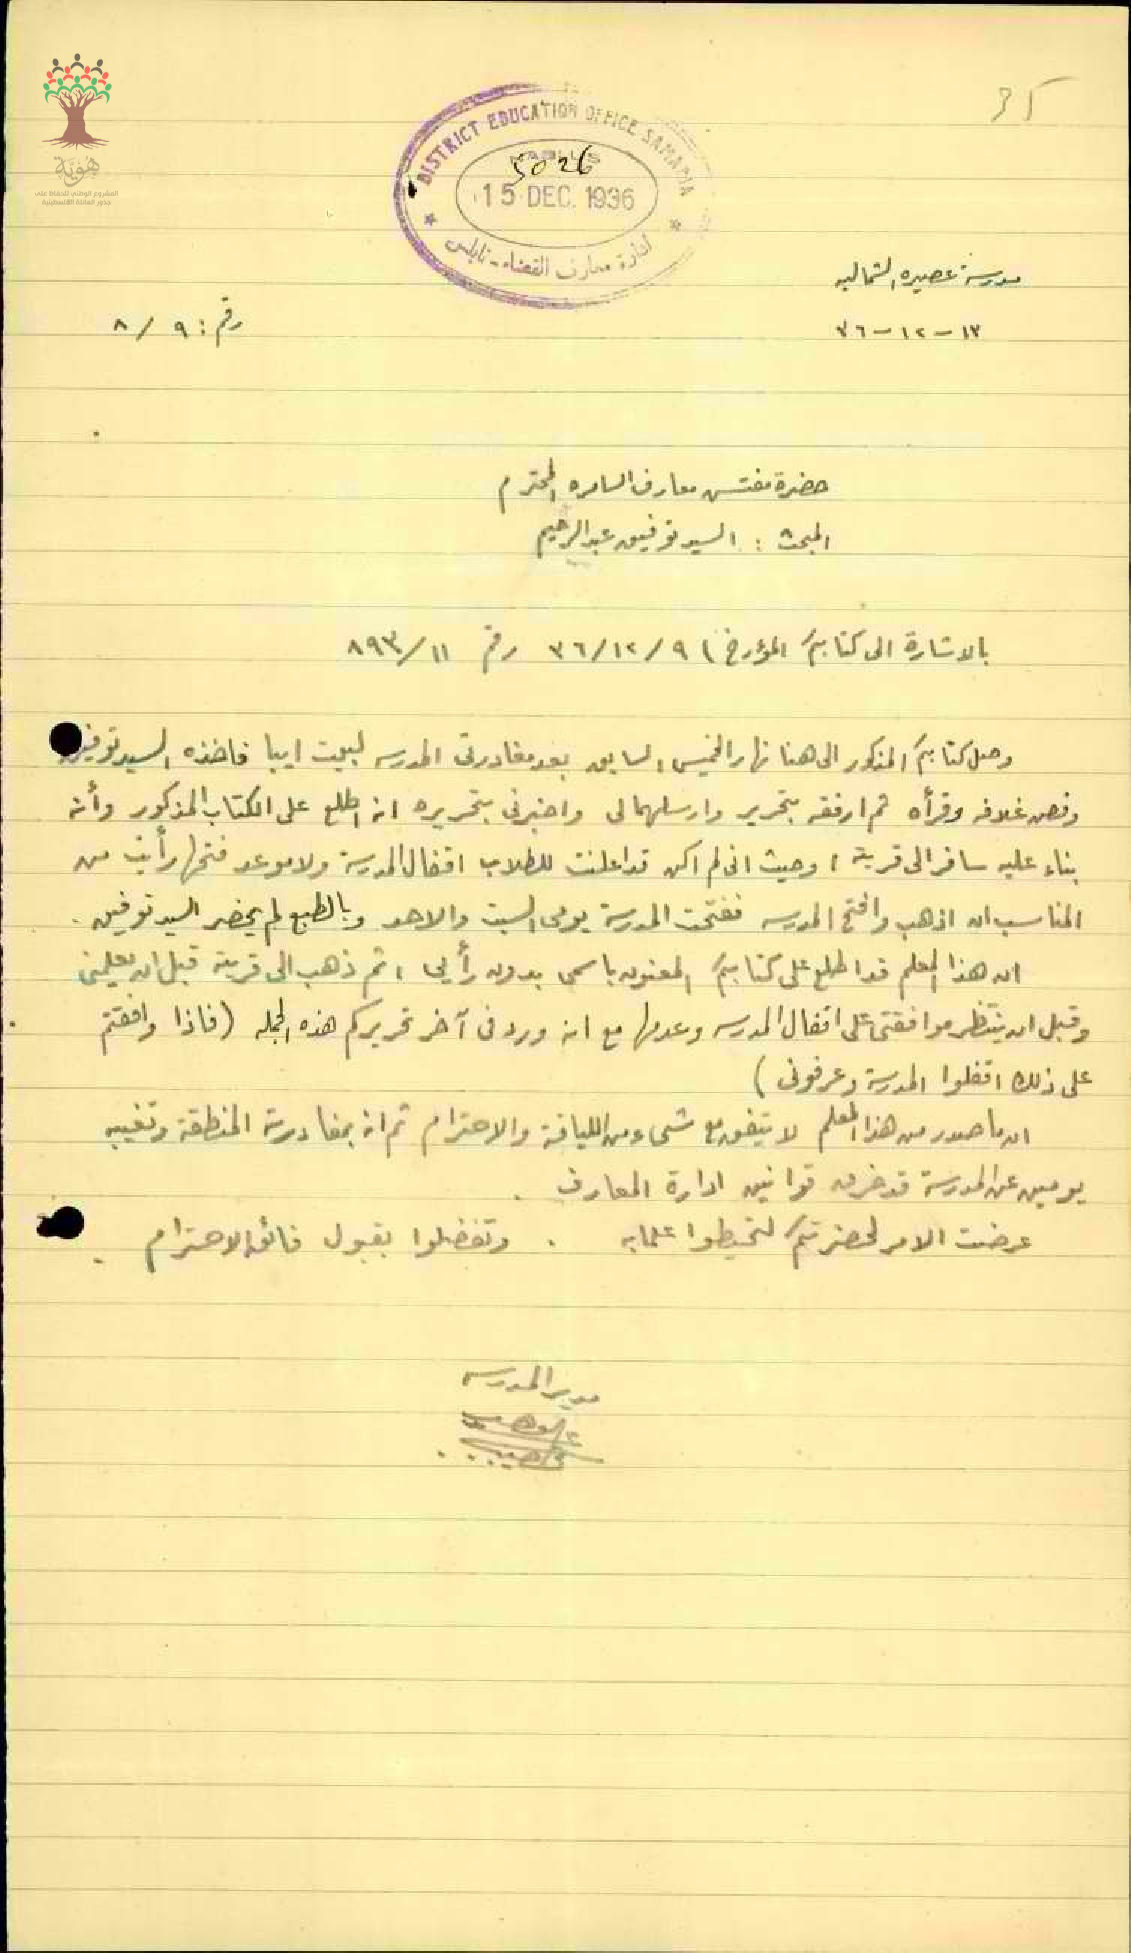 35
DISTRICT EDUCATION OFFICE SAMARIA
NABLUS
5026
15 DEC. 1936
ادارة معارف القضاء - نابلس
هُوِيَّة
المشروع الوطني للحفاظ على
جذور العائلة الفلسطينية
مدرسة عصيره الشماليه
١٣ - ١٢ - ٣٦
رقم : ٩ / ٨
حضرة مفتش معارف السامره المحترم
المبحث : السيد توفيق عبدالرحيم
بالاشارة الى كتابكم المؤرخ ٩ / ١٢ / ٣٦ رقم ١١ / ٨٩٣
وصل كتابكم المذكور الى هنا نهار الخميس السابق بعد مغادرتى المدرسه لبيت ايبا فاخذه السيد توفيق
وفض غلافه وقرأه ثم ارفقه بتحرير وارسلهما لى واخبرنى بتحريره انه اطلع على الكتاب المذكور وأنه
بناء عليه سافر الى قريته ، وحيث انى لم اكن قد اعلنت للطلاب اقفال المدرسة ولا موعد فتحها رأيت من
المناسب ان اذهب وافتح المدرسه ففتحت المدرسة يومى السبت والاحد وبالطبع لم يحضر السيد توفيق .
ان هذا المعلم قد اطلع على كتابكم المعنون باسمى بدون رأيى ، ثم ذهب الى قريته قبل ان يعلمنى
وقبل ان ينتظر موافقتى على اقفال المدرسه وعدمها مع انه ورد فى آخر تحريركم هذه الجمله ( فاذا وافقتم
على ذلك اقفلوا المدرسة وعرفونى )
ان ما صدر من هذا المعلم لا يتفق مع شىء من اللياقة والاحترام ثم انه بمغادرته المنطقة وتغيبه
يومين عن المدرسة قد خرق قوانين ادارة المعارف .
عرضت الامر لحضرتكم لتحيطوا علما به . وتفضلوا بقبول فائق الاحترام .
مدير المدرسه